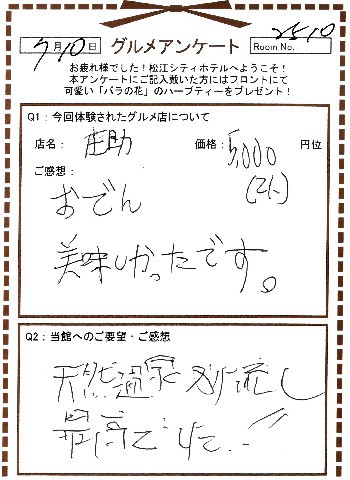 7月10日 グルメアンケート Room No. 2510
お疲れ様でした！松江シティホテルへようこそ！
本アンケートにご記入戴いた方にはフロントにて
可愛い「バラの花」のハーブティーをプレゼント！
Q1：今回体験されたグルメ店について
店名： 庄助 価格： 5,000 円位
(2人)
ご感想：
おでん
美味しかったです。
Q2：当館へのご要望・ご感想
天然温泉かけ流し
最高でした!!